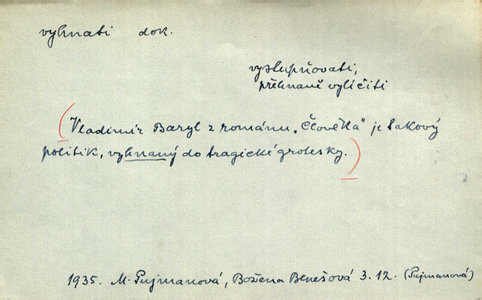 vyhnati dok.
vystupňovati,
přehnaně vylíčiti
Vladimír Baryl z románu „Člověka" je takový
politik, vyhnaný do tragické grotesky.
1935. M. Pujmanová, Božena Benešová 3.12. (Pujmanová)